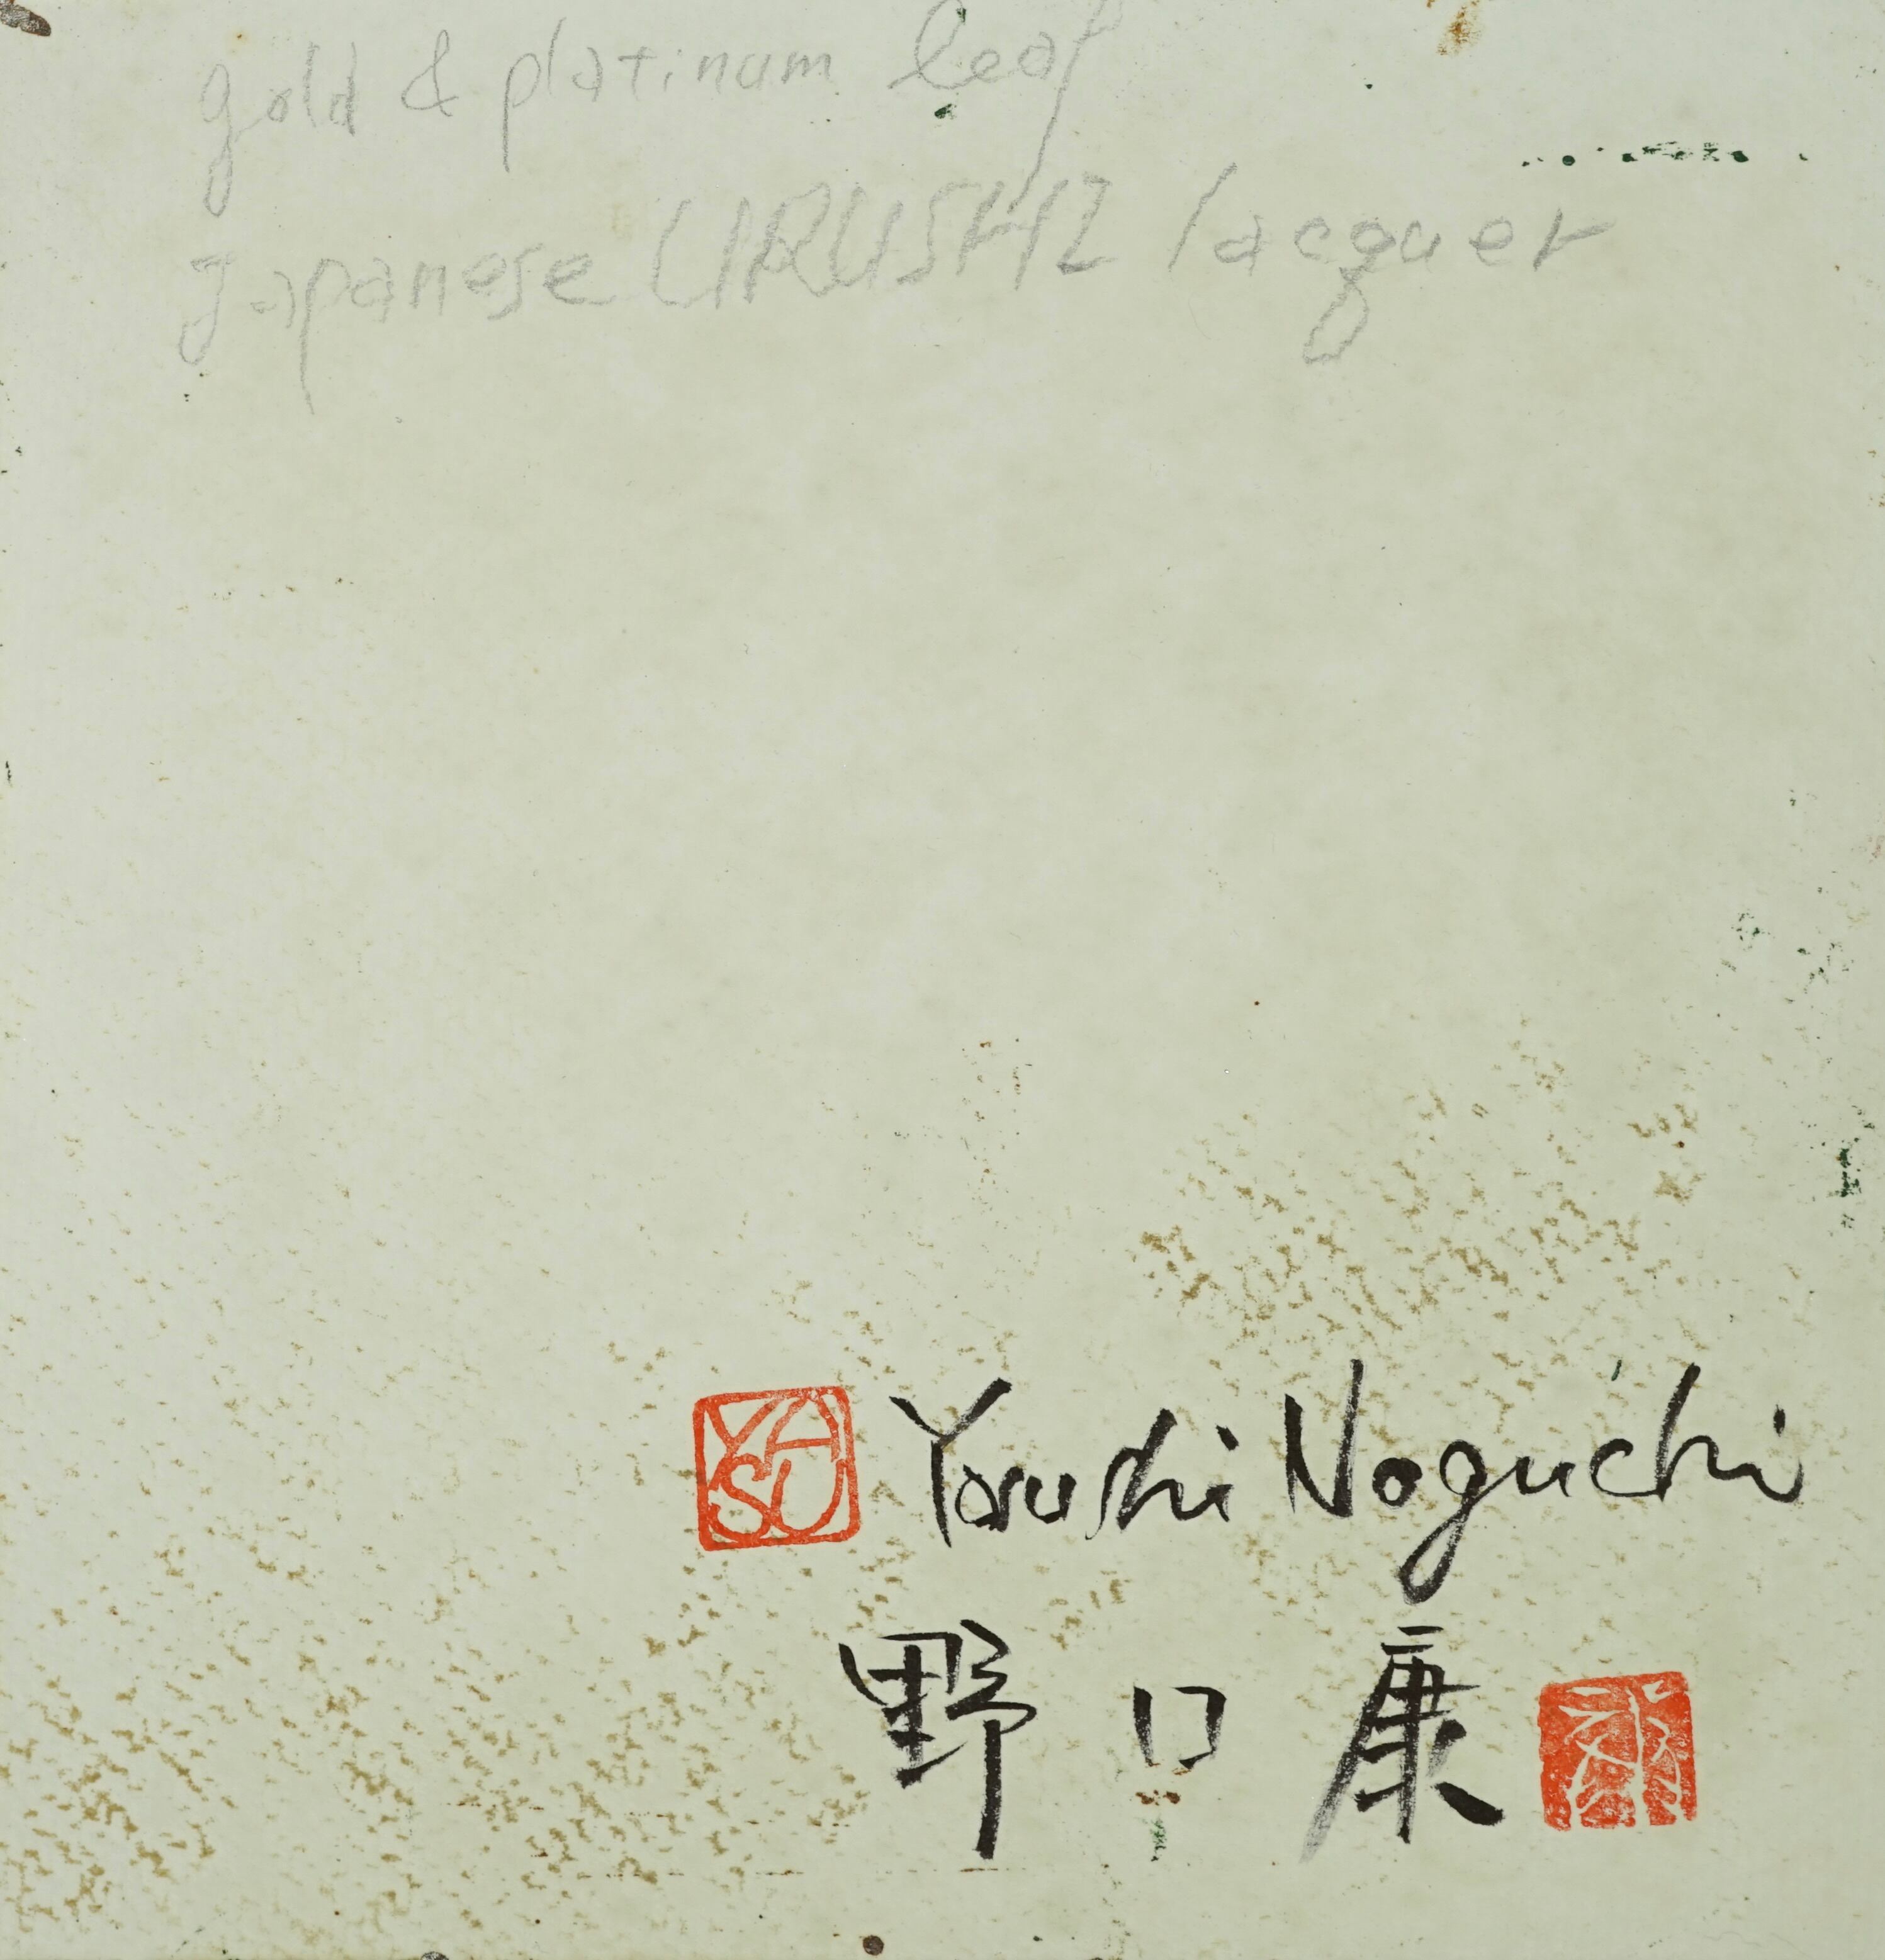 gold & platinum leaf
Japanese URUSHI lacquer
YASU Yasushi Noguchi
野口康